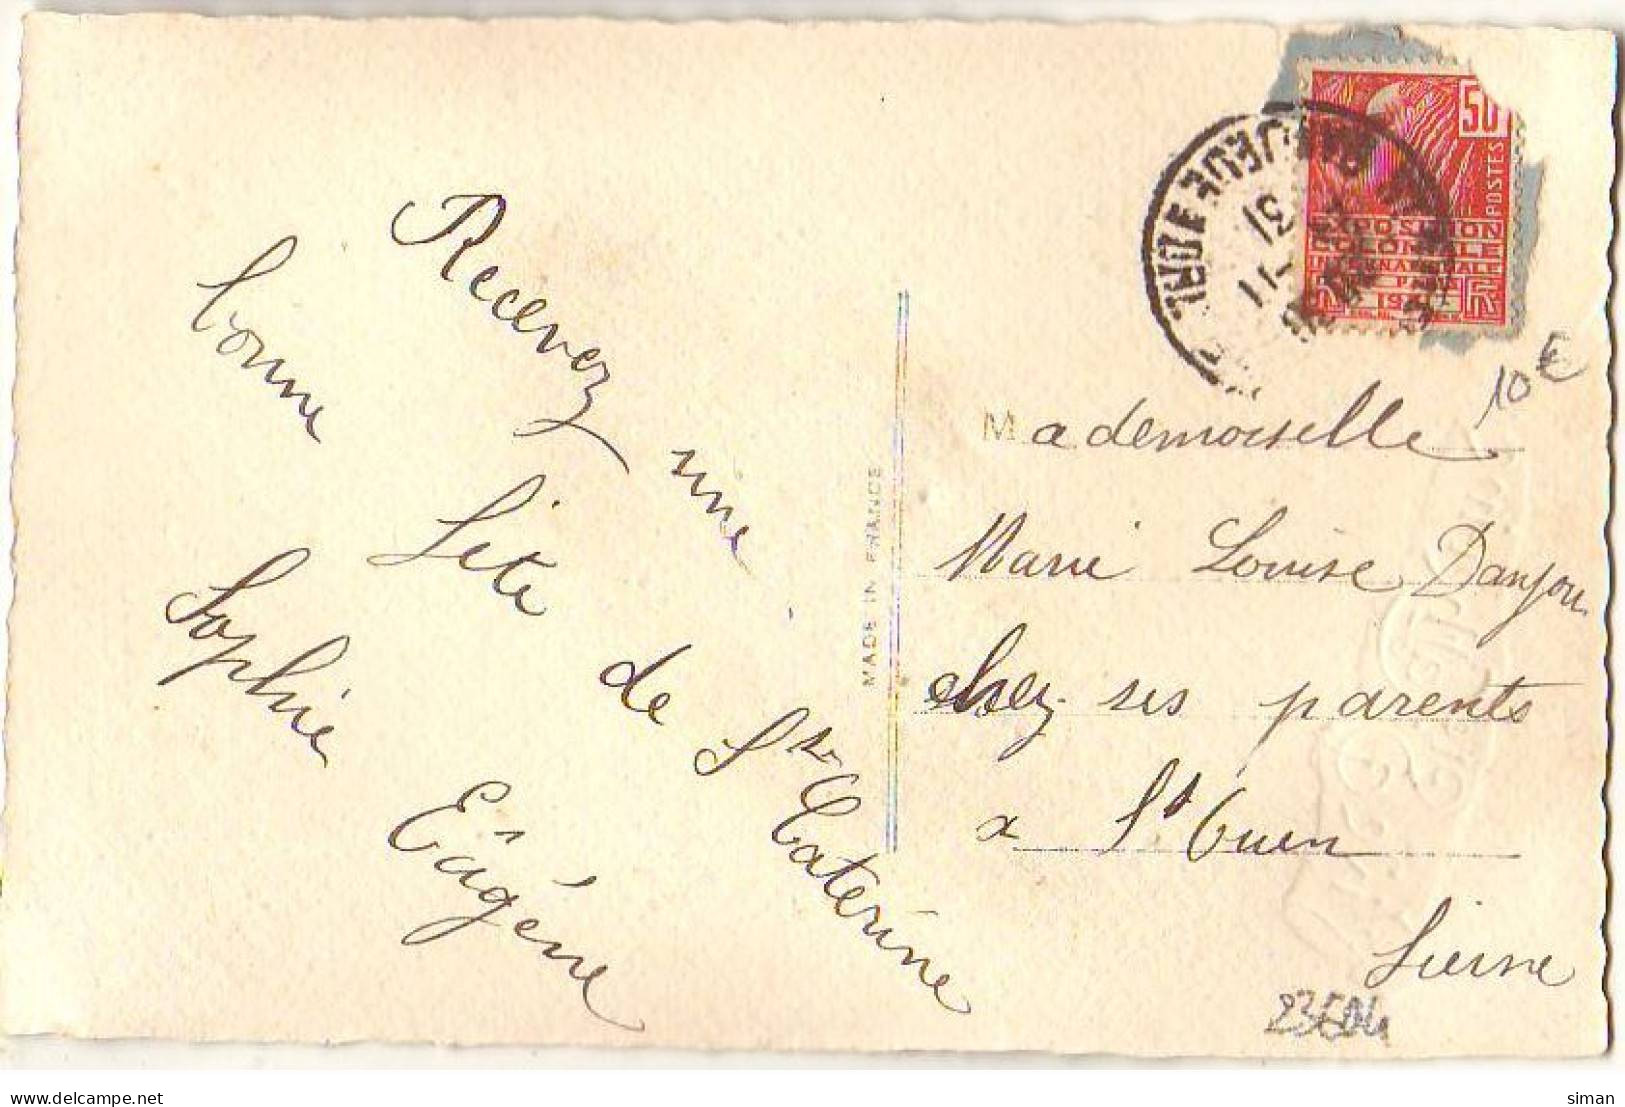 Recevez une
bonne fête de Ste Caterine
Sophie Eugéne
MADE IN FRANCE
50
POSTES
EXPOSITION
COLONIALE
INTERNATIONALE
PARIS
1931
RF
31
10 €
Mademoiselle
Marie Louise Danjou
chez ses parents
a St Ouen
Sierne
23504
delcampe.net
siman